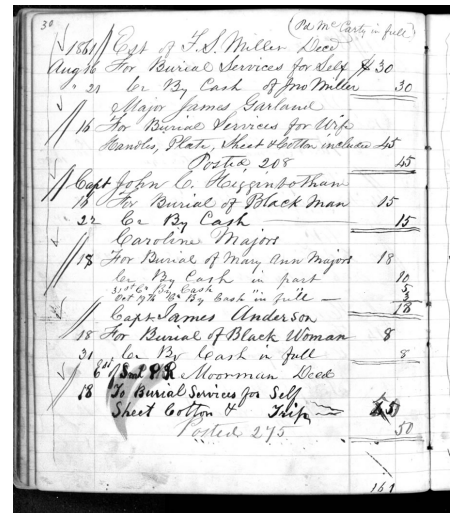 30
(Pd McCarty in full)
1861 Est of F.S. Miller Decd
Aug 16 For Burial Services for Self $30
" 21 Cr By Cash of Jno Miller 30
Major James Garland
16 For Burial Services for Wife
Handles, Plate, Sheet & Cotton included 45
Posted 208 45
Capt John C. Higginbotham
18 For Burial of Black Man 15
22 Cr By Cash 15
Caroline Majors
18 For Burial of Mary Ann Majors 18
Cr By Cash in part 10
31st Cr By Cash 5
Oct 17th Cr By Cash in full — 3
18
Capt James Anderson
18 For Burial of Black Woman 8
21 Cr By Cash in full 8
Est of Saml P R Moorman Decd
18 To Burial Services for Self
Sheet Cotton & Trip 50
Posted 275 50
161